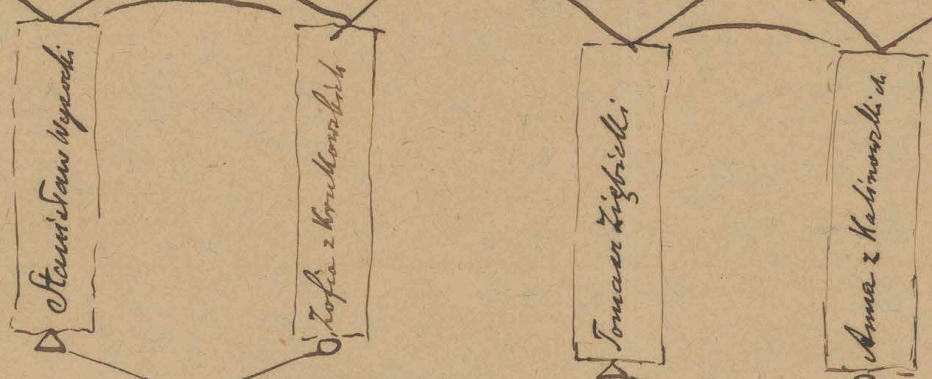 Stanisław Wysocki
Zofia z Krutkowskich
Tomasz Zięzbicki
Anna z Kalinowskich